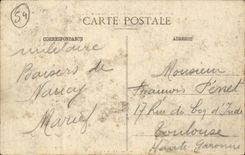 59
CARTE POSTALE
CORRESPONDANCE
ADRESSE
militaire
Baisers de
Nancy
Marie
Monsieur
François Fénet
17 Rue du Coq d'Inde
Toulouse
Haute Garonne